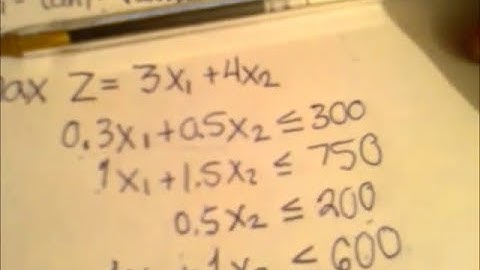 ax Z = 3x₁ + 4x₂
0.3x₁ + 0.5x₂ ≤ 300
1x₁ + 1.5x₂ ≤ 750
0.5x₂ ≤ 200
1x₂ ≤ 600